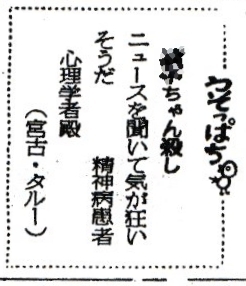 うそっぱち
ちゃん殺し
ニュースを聞いて気が狂い
そうだ　精神病患者
心理学者殿
（宮古・タルー）